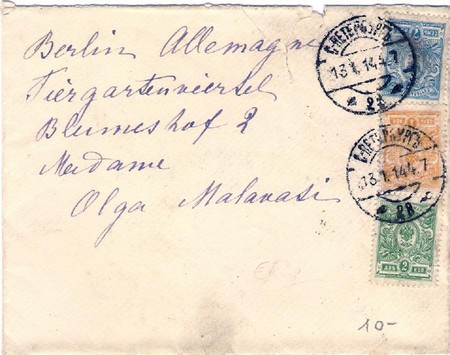 Berlin Allemagne
Tiergartenviersel
Blumeshof 2
Madame
Olga Malavasi
С-ПЕТЕРБУРГЪ
13.1.14 4.7
С-ПЕТЕРБУРГЪ
13.1.14 4.7
2
10-